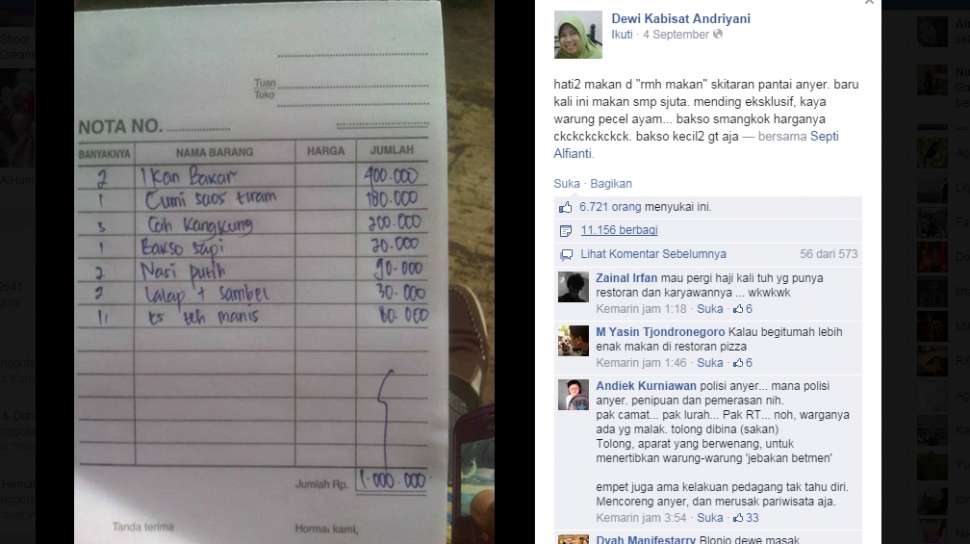 Tuan
Toko
NOTA NO.
BANYAKNYA NAMA BARANG HARGA JUMLAH
2 Ikan Bakar 400.000
1 Cumi saos tiram 180.000
3 Cah Kangkung 200.000
1 Bakso sapi 20.000
2 Nasi putih 90.000
2 Lalap + sambel 30.000
11 es teh manis 80.000
Jumlah Rp. 1.000.000
Tanda terima Hormat kami,
Dewi Kabisat Andriyani
Ikuti · 4 September
hati2 makan d "rmh makan" skitaran pantai anyer. baru
kali ini makan smp sjuta. mending eksklusif, kaya
warung pecel ayam... bakso smangkok harganya
ckckckckckck. bakso kecil2 gt aja — bersama Septi
Alfianti.
Suka · Bagikan
6.721 orang menyukai ini.
11.156 berbagi
Lihat Komentar Sebelumnya 56 dari 573
Zainal Irfan mau pergi haji kali tuh yg punya
restoran dan karyawannya ... wkwkwk
Kemarin jam 1:18 · Suka · 6
M Yasin Tjondronegoro Kalau begitumah lebih
enak makan di restoran pizza
Kemarin jam 1:46 · Suka · 6
Andiek Kurniawan polisi anyer... mana polisi
anyer. penipuan dan pemerasan nih.
pak camat... pak lurah... Pak RT... noh, warganya
ada yg malak. tolong dibina (sakan)
Tolong, aparat yang berwenang, untuk
menertibkan warung-warung 'jebakan betmen'
empet juga ama kelakuan pedagang tak tahu diri.
Mencoreng anyer, dan merusak pariwisata aja.
Kemarin jam 3:54 · Suka · 33
Dyah Manifestarry Blonjo dewe masak